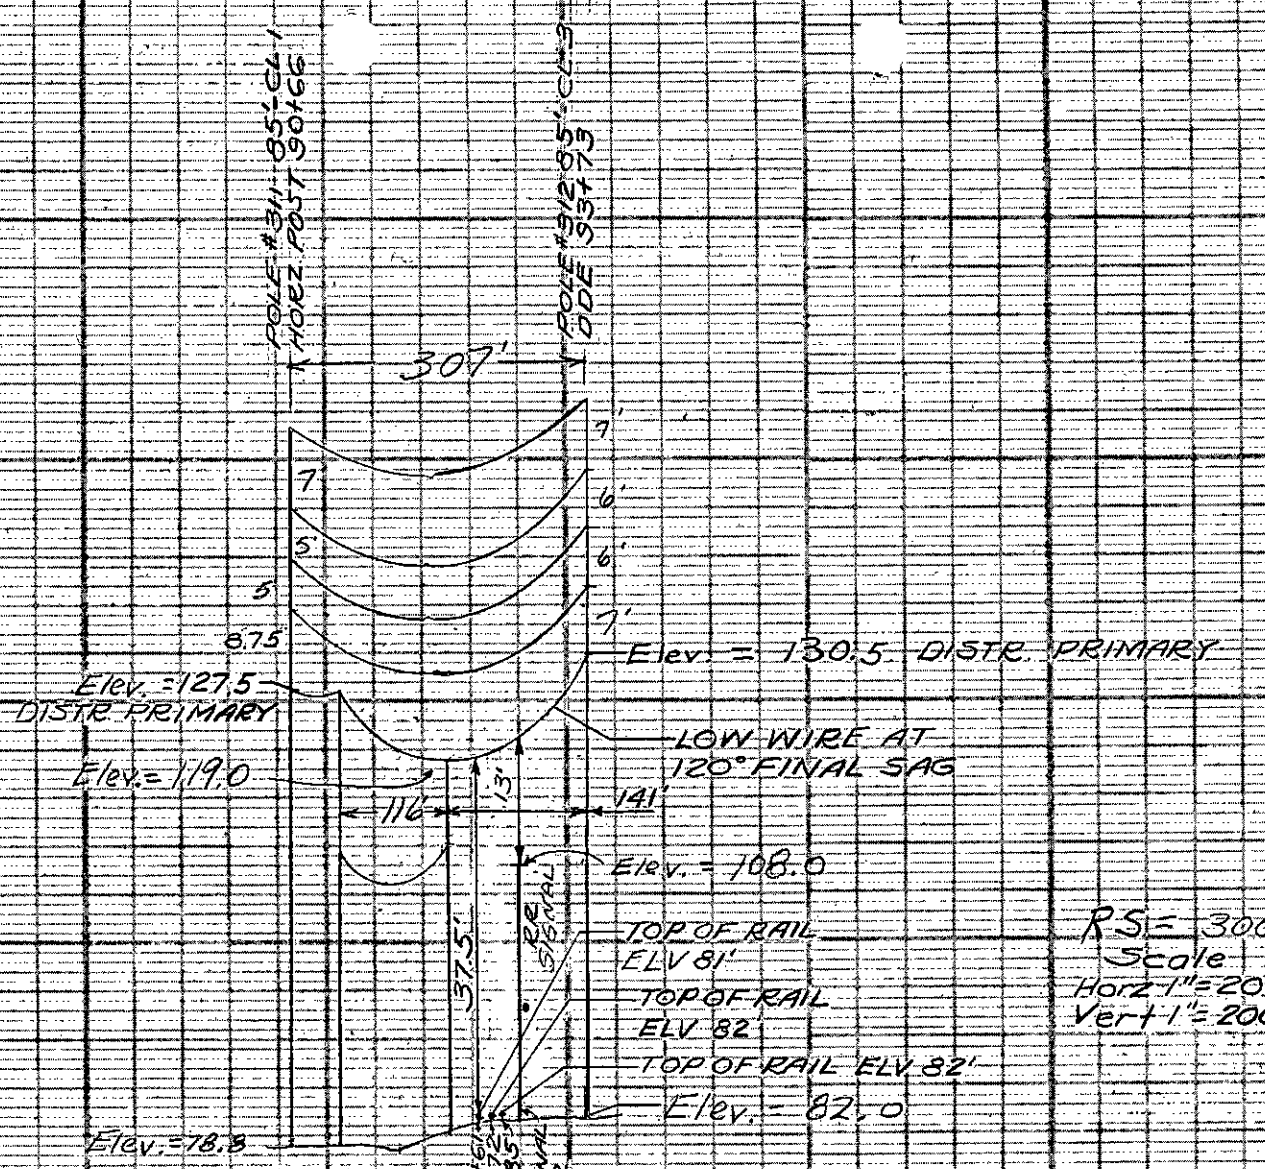 POLE #311-85'-CL-1
HORZ. POST 90+66
POLE #312-85'-CL-3
DDE 93+73
307'
7'
7
6'
5'
6'
5
7'
8.75
Elev. = 130.5 DISTR. PRIMARY
Elev. = 127.5
DISTR. PRIMARY
LOW WIRE AT
120° FINAL SAG
Elev. = 119.0
13'
116'
141'
Elev. = 108.0
RR
SIGNAL
37.5'
TOP OF RAIL
ELV 81'
TOP OF RAIL
ELV 82'
TOP OF RAIL ELV. 82'
Elev. = 82.0
Elev. = 78.8
RS = 300
Scale
Horz 1"=20
Vert 1"=200